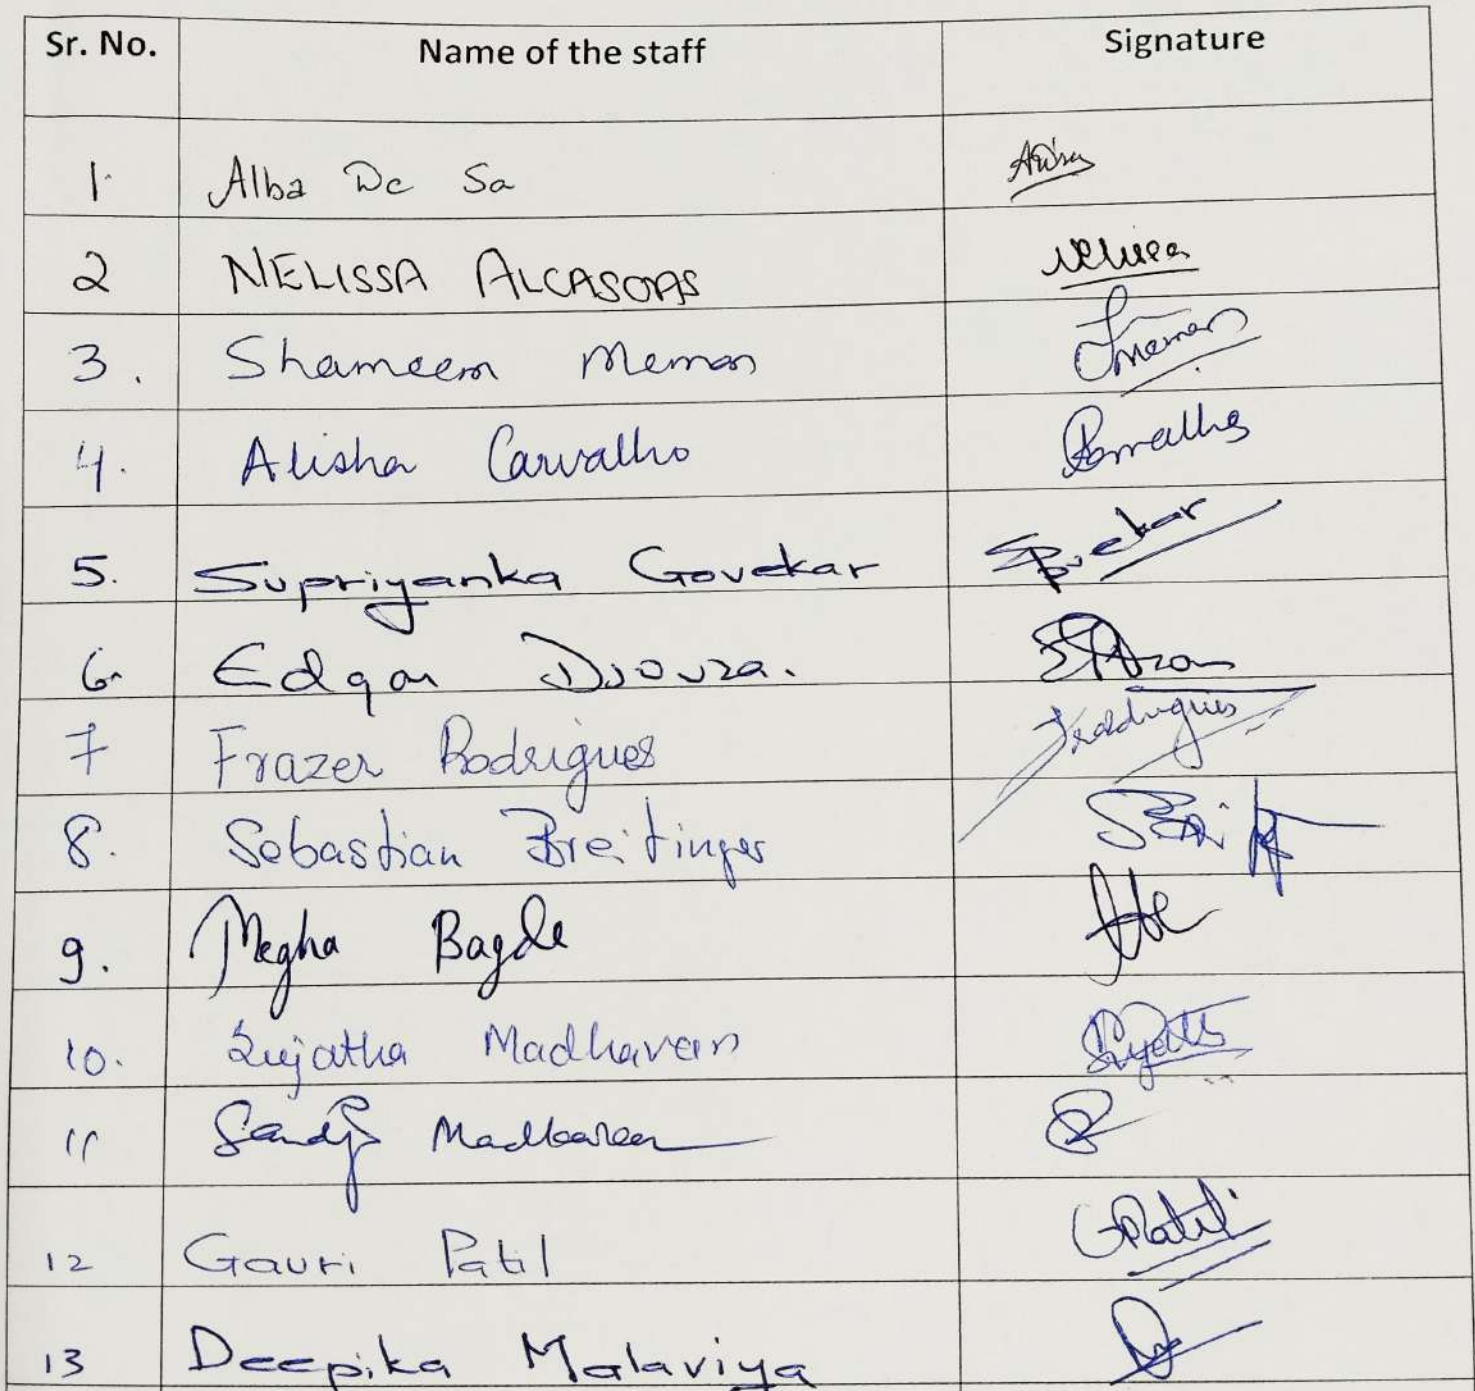 Sr. No. Name of the staff Signature
1. Alba De Sa
2 NELISSA ALCASOAS Nelissa
3. Shameem Memon Smemon
4. Alisha Carvalho Carvalho
5. Supriyanka Govekar
6. Edgar Dsouza.
7 Frazer Rodrigues Frodrigues
8. Sebastian Breitinger
9. Megha Bagde
10. Sujatha Madhavan
11 Madhavan
12 Gauri Patil GPatil
13 Deepika Malaviya